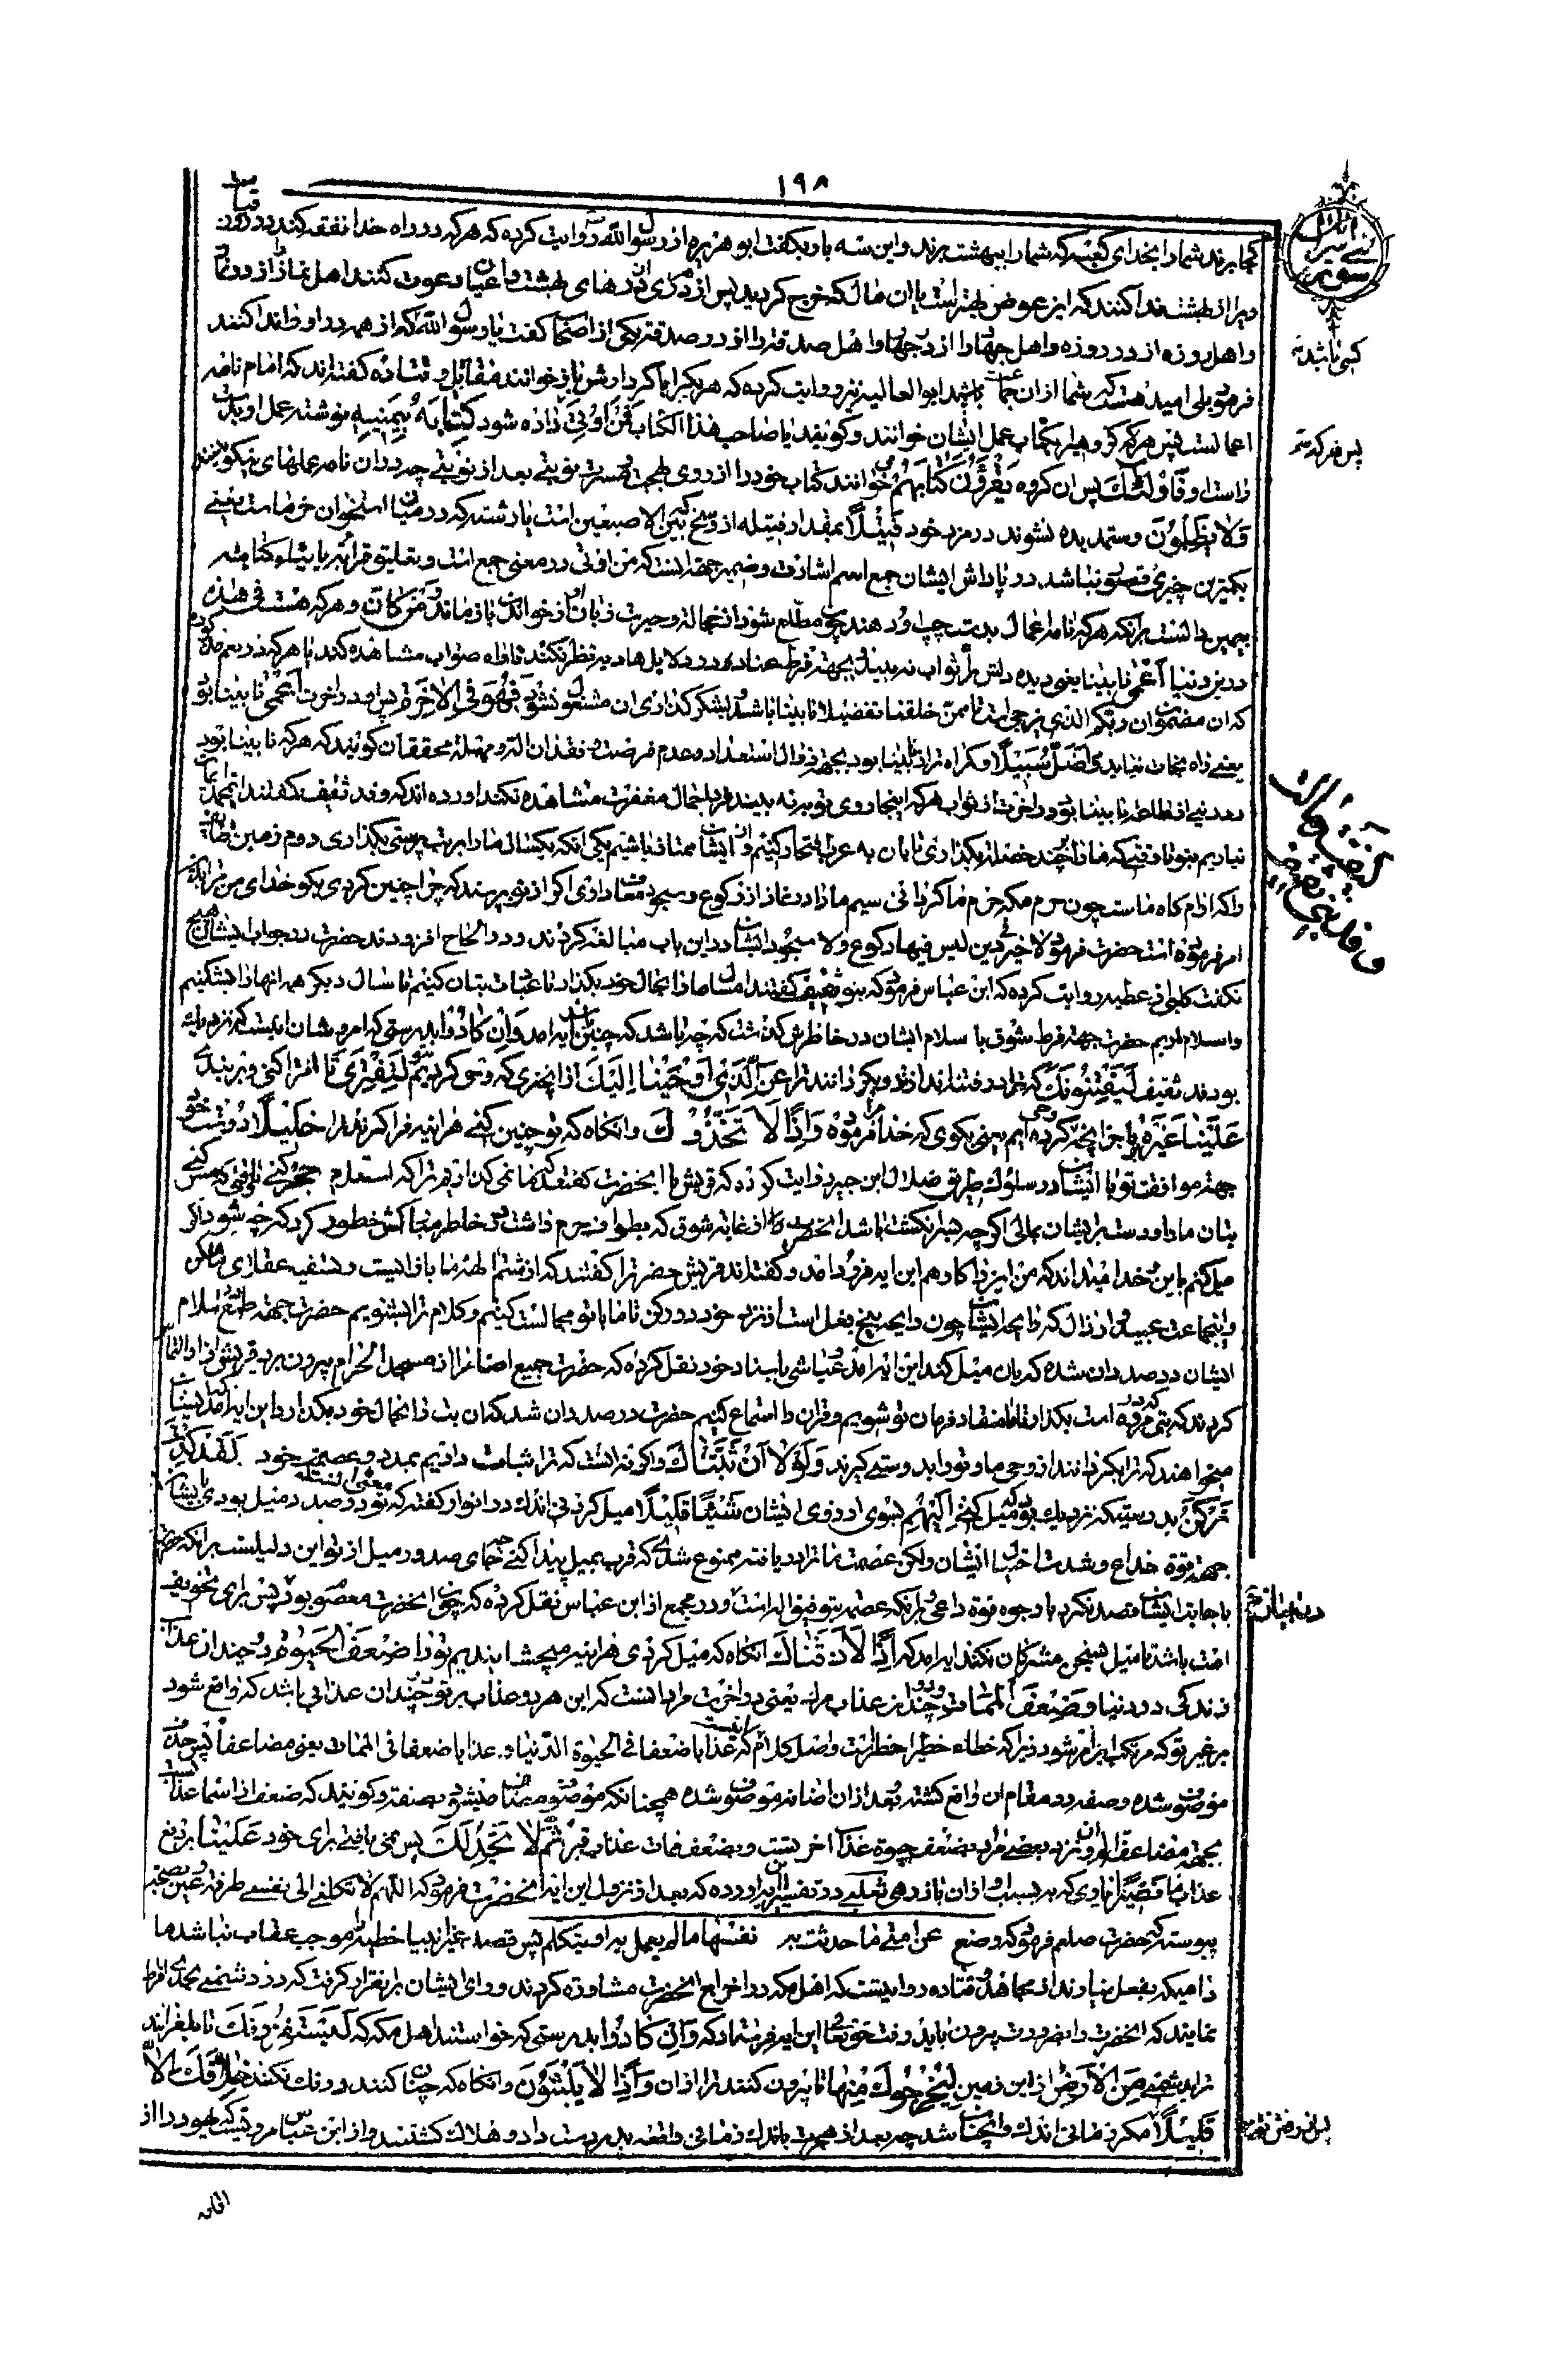 ١٩٨
سورة بنی اسرائیل
کجا برند شما را بخدای کعبه که شما را ببهشت برند و این سه بار بگفت ابو هریره از رسول الله روایت کرده که هر که در راه خدا نفقه کند در روز قیامت
ویرا از بهشت ندا کنند که این عوض بهتر است یا ان مال که خرج کردید پس از مردی از درهای بهشت داعیان دعوت کنند اهل نماز را از در نماز
و اهل روزه از در روزه و اهل جهاد را از در جهاد و اهل صدقه را از در صدقه یکی از اصحاب گفت یا رسول الله که از همه در او را ندا کنند
فرمود بلی امید هست که شما از ان جماعت باشید ابو العالیه نیز روایت کرده که هر یک را با کردارش باز خوانند مقاتل و قتاده گفته اند که امام نامه
اعمالست پس هر که گروهی را بکتاب عمل ایشان خوانند و گویند یا صاحب هذا الکتاب فَمَنْ اُوتِیَ داده شود کِتابَهُ بِیَمینِهِ نوشته عمل او بدست
راست او فَاُولٰئِكَ پس ان گروه یَقْرَؤُنَ کِتابَهُمْ می خوانند کتاب خود را از روی بهجت و مسرت نوبتی بعد از نوبتی چه در ان نامه عملهای نیکو بینند
وَلا یُظْلَمُونَ و ستمدیده نشوند در مزد خود فَتیلاً بمقدار فتیله از وسخ که بین الاصبعین است یا رشته که در میان استخوان خرماست یعنی
بکمترین چیزی نقصی نباشد در پاداش ایشان جمع اسم اشارت و ضمیر جهة انست که من اوتی در معنی جمع است و تعلیق قرائت بایتاء کتاب
بیمین دالست بر آنکه هر که نامه اعمال بدست چپ او دهند چون مطلع شود از خجالة و حیرت زبان او از خواندن باز ماند وَمَنْ کانَ و هر که هست فی هٰذِهِ
در این دنیا اَعْمٰی نابینا یعنی دیده دلش راه ثواب نه بیند بجهة فرط عناد و در دلایل هادیه نظر نکند تا راه صواب مشاهده کند یا هر که در نعم مذکوره
که ان مضمون ربکم الذی یزجی است تا ممن خلقنا تفضیلا نابینا باشد و بشکر گذاری ان مشغول نشود فَهُوَ فِی الْاٰخِرَةِ پس او در اخرت اَعْمٰی نابینا بود
یعنی راه نجات نیابد وَاَضَلُّ سَبیلاً و گمراه تر از نابینا بود بجهة زوال استعداد و عدم فرصت و فقدان الت و مهلت محققان گویند که هر که نابینا بود
در دنیا از طاعت نابینا بود در اخرت از ثواب هر که اینجا روی توبه نه بیند فردا جمال مغفرت مشاهده نکند اورده اند که وفد ثقیف گفتند ای محمد ایمان
نیاریم بتو تا وقتی که ما را چند خصلت بگذاری تا بان به عرب افتخار کنیم و از ایشان ممتاز باشیم یکی انکه یکسال ما را ببت پرستی بگذاری دوم زمین طایف
را که ارام گاه ماست چون حرم مکه حرم ما گردانی سیم ما را در نماز از رکوع و سجود معاف داری اگر از تو پرسند که چرا چنین کردی بگو خدای من مرا بدان
امر فرموده است حضرت فرمود لا خیر فی دین لیس فیها رکوع ولا سجود ایشان در این باب مبالغه کردند و در الحاح افزودند حضرت در جواب ایشان هیچ
نگفت کلبی از عطیه روایت کرده که ابن عباس فرمود که بنو ثقیف گفتند امسال ما را بحال خود بگذار تا عبادت بتان کنیم تا سال دیگر همه انها را بشکنیم
و اسلام اریم حضرت جهة فرط شوق باسلام ایشان در خاطرش گذشت که چه باشد که چنین باشد ایه امد وَاِنْ کادُوا بدرستی که امر و شان اینست که نزدیک
بودند ثقیف لَیَفْتِنُونَكَ که ترا در فتنه اندازند و بگردانند ترا عَنِ الَّذی اَوْحَیْنا اِلَیْكَ از انچیزی که وحی کردیم بتو لِتَفْتَرِیَ تا افترا کنی و بر بندی
عَلَیْنا غَیْرَهُ بر ما جز انچه وحی کرده ایم یعنی بگوی که خدا فرموده وَاِذًا لَاتَّخَذُوكَ و انگاه که تو چنین کنی هراینه فرا گیرند ترا خَلیلاً دوست خود
جهة موافقت تو با ایشان در سلوك طریق ضلال ابن جبیر روایت کرده که قریش با انحضرت گفتند که ما نمی گذاریم ترا که استلام حجر کنی تا وقتی که مس کنی
بتان ما را و دست بر ایشان بمالی اگر چه بسر انگشت باشد انحضرت را از غایة شوق که بطواف حرم داشت در خاطر مبارکش خطور کرد که چه شود اگر
میل کنم باین و خدا میداند که من این را کارهم این ایه فرود امد و گفته اند قریش حضرت را گفتند که از شتم الهه ما باز ایست و تسفیه عقلای ما مکن
و اینجماعت عبید و اراذل که رایحه ایشان چون رایحه بیخ بغل است از نزد خود دور کن تا ما با تو مجالست کنیم و کلام ترا بشنویم حضرت جهة طمع اسلام
ایشان در صدد ان شده که بان میل کند این ایه امد و عیاشی باسناد خود نقل کرده که حضرت جمیع اصنام را از مسجد الحرام بیرون برد قریش از او التماس
کردند که بتی که در مروه است بگذار تا ما منقاد فرمان تو شویم و قران را استماع کنیم حضرت در صدد ان شد که ان بت را بحال خود بگذارد این ایه امد که ایشان
میخواهند که ترا بگردانند از وحی ما و ترا بدوستی گیرند وَلَوْلا اَنْ ثَبَّتْناكَ و اگر نه انست که ترا ثبات دادیم بمدد و عصمت خود لَقَدْ کِدْتَ
تَرْکَنُ بدرستیکه نزدیك بود که میل کنی اِلَیْهِمْ بسوی ارزوی ایشان شَیْئًا قَلیلاً میل کردنی اندك در انوار گفته که معنی انست که تو در صدد میل بودی بایشان
جهة قوة خداع و شدت احتیال ایشان ولکن عصمت ما ترا دریافته ممنوع شدی که قرب بمیل پیدا کنی چه جای صدور میل از تو این دلیلست بر انکه حضرت
باجابت ایشان قصد نکرد با وجود قوة داعی و بر انکه عصمت بتوفیق الله است و در مجمع از ابن عباس نقل کرده که چون انحضرت معصوم بود پس برای تخویف
امت باشد تا میل بسخن مشرکان نکنند ایه امد که اِذًا لَاَذَقْناكَ انگاه که میل کردی هراینه میچشاندیم تو را ضِعْفَ الْحَیٰوةِ دو چندان عذاب
زندگی در دنیا وَضِعْفَ الْمَماتِ و دو چندان عذاب مرك یعنی در اخرت مراد انست که این هر دو عذاب بر تو دو چندان عذابی باشد که واقع شود
بر غیر تو که مرتکب این امر شود زیرا که خطاء خطیر اخطر است و اصل کلام اینست که عذابا ضعفا فی الحیوة الدنیا و عذابا ضعفا فی الممات یعنی مضاعفا پس حذف
موصوف شده و صفة در مقام ان واقع گشته بعد از ان اضافه موصوف شده همچنانکه موصوف مضاف میشود بصفة و گویند که ضعف از اسماء عذابست
بجهة مضاعف بودن ان و نزد بعضی مراد بضعف حیوة عذاب اخرتست و بضعف ممات عذاب قبر ثُمَّ لا تَجِدُ لَكَ پس نمی یافتی برای خود عَلَیْنا بر دفع
عذاب ما نَصیرًا یاوری که بسبب او از ان باز رهی ثعلبی در تفسیر اورده که بعد از نزول این ایه انحضرت فرمود که اللهم لا تکلنی الی نفسی طرفة عین و بصحت
پیوسته که حضرت صلعم فرمود که وضع عن امتی ما حدثت به نفسها ما لم یعمل به او یتکلم پس قصد غیر انبیا خطیئه را موجب عقاب نباشد ما
دامیکه بفعل نیاورند از مجاهد و قتاده روایتست که اهل مکه در اخراج انحضرت مشاوره کردند و رای ایشان بران قرار گرفت که در دشمنی بحدی افراط
نمایند که انحضرت را ضرورت بیرون باید رفت حق تعالی این ایه فرستاد که وَاِنْ کادُوا بدرستی که خواستند اهل مکه که لَیَسْتَفِزُّونَكَ تا بلغزانند
ترا بدشمنی مِنَ الْاَرْضِ از این زمین لِیُخْرِجُوكَ مِنْها تا بیرون کنند ترا از ان وَاِذًا لا یَلْبَثُونَ و انگاه که چنان کنند درنك نکنند خِلافَكَ اِلاّ
قَلیلاً مگر زمانی اندك و انچنان شد چه بعد از هجرت باندك زمانی واقعه بدر دست داد و هلاك گشتند و از ابن عباس مرویست که یهود را از
کسی باشد که
پس فرمود که